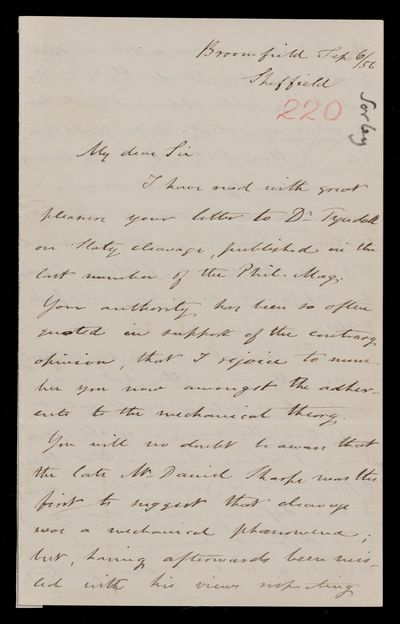 Broomfield Sep 6/56
Sheffield
220
Sorby
My dear Sir
I have read with great
pleasure your letter to Dr Tyndall
on Slaty cleavage, published in the
last number of the Phil. Mag.
Your authority has been so often
quoted in support of the contrary
opinion, that I rejoice to num-
ber you now amongst the adher-
ents to the mechanical theory.
You will no doubt be aware that
the late Mr Daniel Sharpe was the
first to suggest that cleavage
was a mechanical phenomena;
but, having afterwards been mis-
led with his views respecting